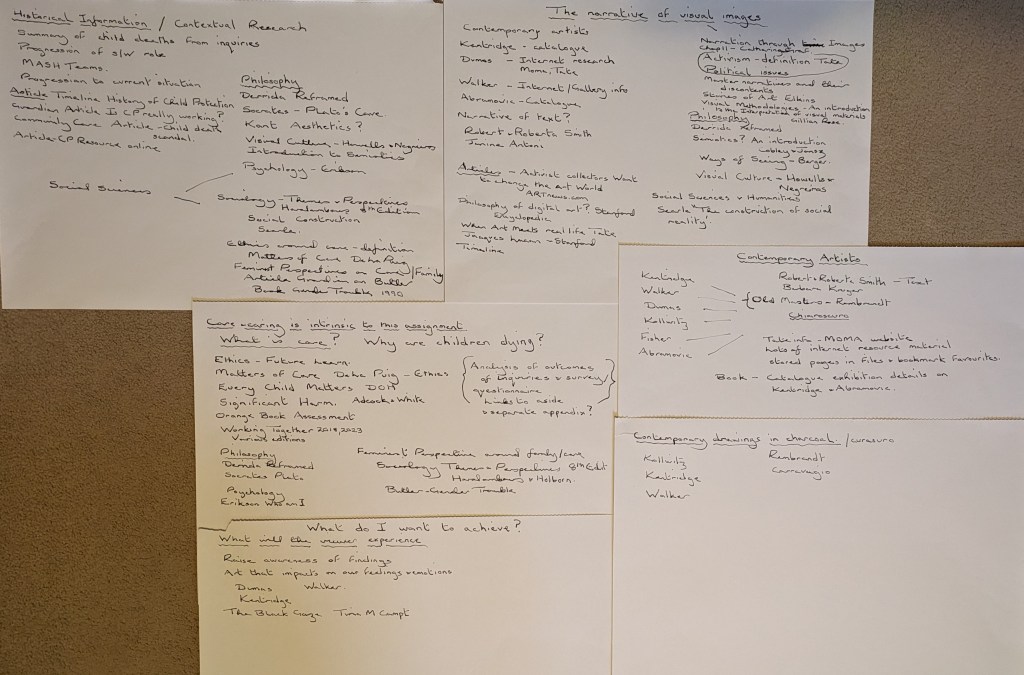 Historical Information / Contextual Research
Summary of child deaths from inquiries
Progression of s/w role
MASH Teams.
Progression to current situation
Article Timeline History of Child Protection
Guardian Article Is CP really working?
Community Care Article - Child death
scandal.
Article - CP Resource online
Social Sciences
Philosophy
Derrida Reframed
Socrates - Plato's Cave
Kant Aesthetics?
Visual Culture - Howells & Negreiros
Introduction to Semiotics
Psychology - Erikson
Sociology - Themes & Perspectives
Haralambous 8th Edition
Social Construction
Searle
Ethics around care - definition
Matters of Care De la Puig
Feminist Perspectives on Care / Family
Article Guardian on Butler
Book Gender Trouble 1990
The narrative of visual images
Contemporary artists
Kentridge - catalogue
Dumas - Internet research
Moma, Tate
Walker - Internet/Gallery info
Abramovic - Catalogue
Narrative of text?
Robert & Roberta Smith
Janine Antoni
Articles - Activist collectors Want
to change the Art World
ARTnews.com
Philosophy of digital art? Stanford
Encyclopedic
When Art Meets real life Tate
Images - Stanford
Timeline
Narration through Images
Activism - definition Tate
Political issues
Master narratives and their
discontents
Stories of Art Elkins
Visual Methodologies - An introduction
to the Interpretation of visual materials
Gillian Rose
Philosophy
Derrida Reframed
Semiotics? An introduction
Cobley & Jansz
Ways of Seeing - Berger.
Visual Culture - Howells &
Negreros
Social Sciences & Humanities
Searle "The construction of social
reality'.
Contemporary Artists
Kentridge
Walker
Dumas
Kollwitz
Fisher
Abramovic
Robert & Roberta Smith - Text
Barbara Kruger
Old Masters - Rembrandt
Chiaroscuro
Tate info - MOMA website
Lots of internet resource material
stored pages in Files & bookmark favourites.
Book - Catalogue exhibition details on
Kentridge & Abramovic.
Care & caring is intrinsic to this assignment
What is care? Why are children dying?
Ethics - Future Learn.
Matters of Care De la Puig - Ethics
Every Child Matters DOH
Significant Harm. Adcock & White
Orange Book Assessment
Working Together 2018, 2023
Various editions
Analysis of outcomes
of Inquiries & survey/
questionnaire
Links to aside
& separate appendix?
Philosophy
Derrida Reframed
Socrates Plato
Psychology
Erikson Who am I
Feminist Perspective around family/care.
Sociology Themes & Perspectives 8th Edit
Haralambous & Holborn.
Butler - Gender Trouble
Contemporary drawings in charcoal /
Kollwitz
Kentridge
Walker
Rembrandt
Carravagio
What do I want to achieve?
What will the viewer experience
Raise awareness of findings
Art that impacts on our feelings & emotions
Dumas Walker.
Kentridge
The Black Gaze Tina M Campt